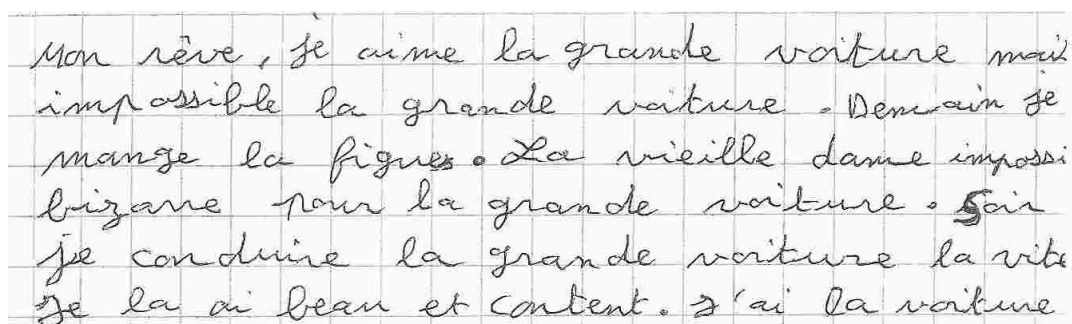 Mon rêve, je aime la grande voiture mais
impossible la grande voiture. Demain je
mange la figues. La vieille dame impossi
bizarre pour la grande voiture. Soir
je conduire la grande voiture la vite
Je la ai beau et content. J'ai la voiture